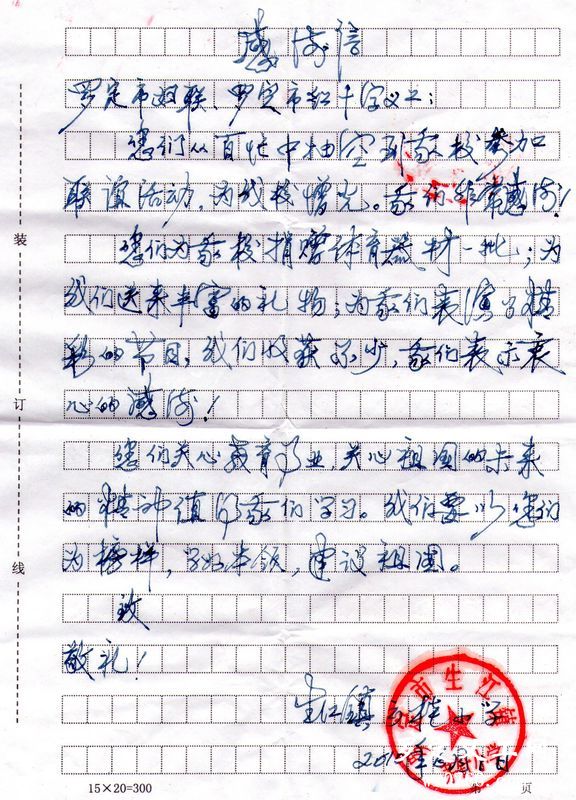 感谢信
罗定市妇联、罗定市红十字义工:
您们从百忙中抽空到我校参加
联谊活动,为我校增光。我们非常感谢!
您们为我校捐赠体育器材一批;为
我们送来丰富的礼物;为我们表演了精
彩的节目,我们收获不少,我们表示衷
心的感谢!
您们关心教育事业,关心祖国的未来
的精神值得我们学习。我们要以您们
为榜样,学好本领,建设祖国。
致
敬礼!
生江镇 小学
市生江镇
装
订
线
15×20=300
第 页